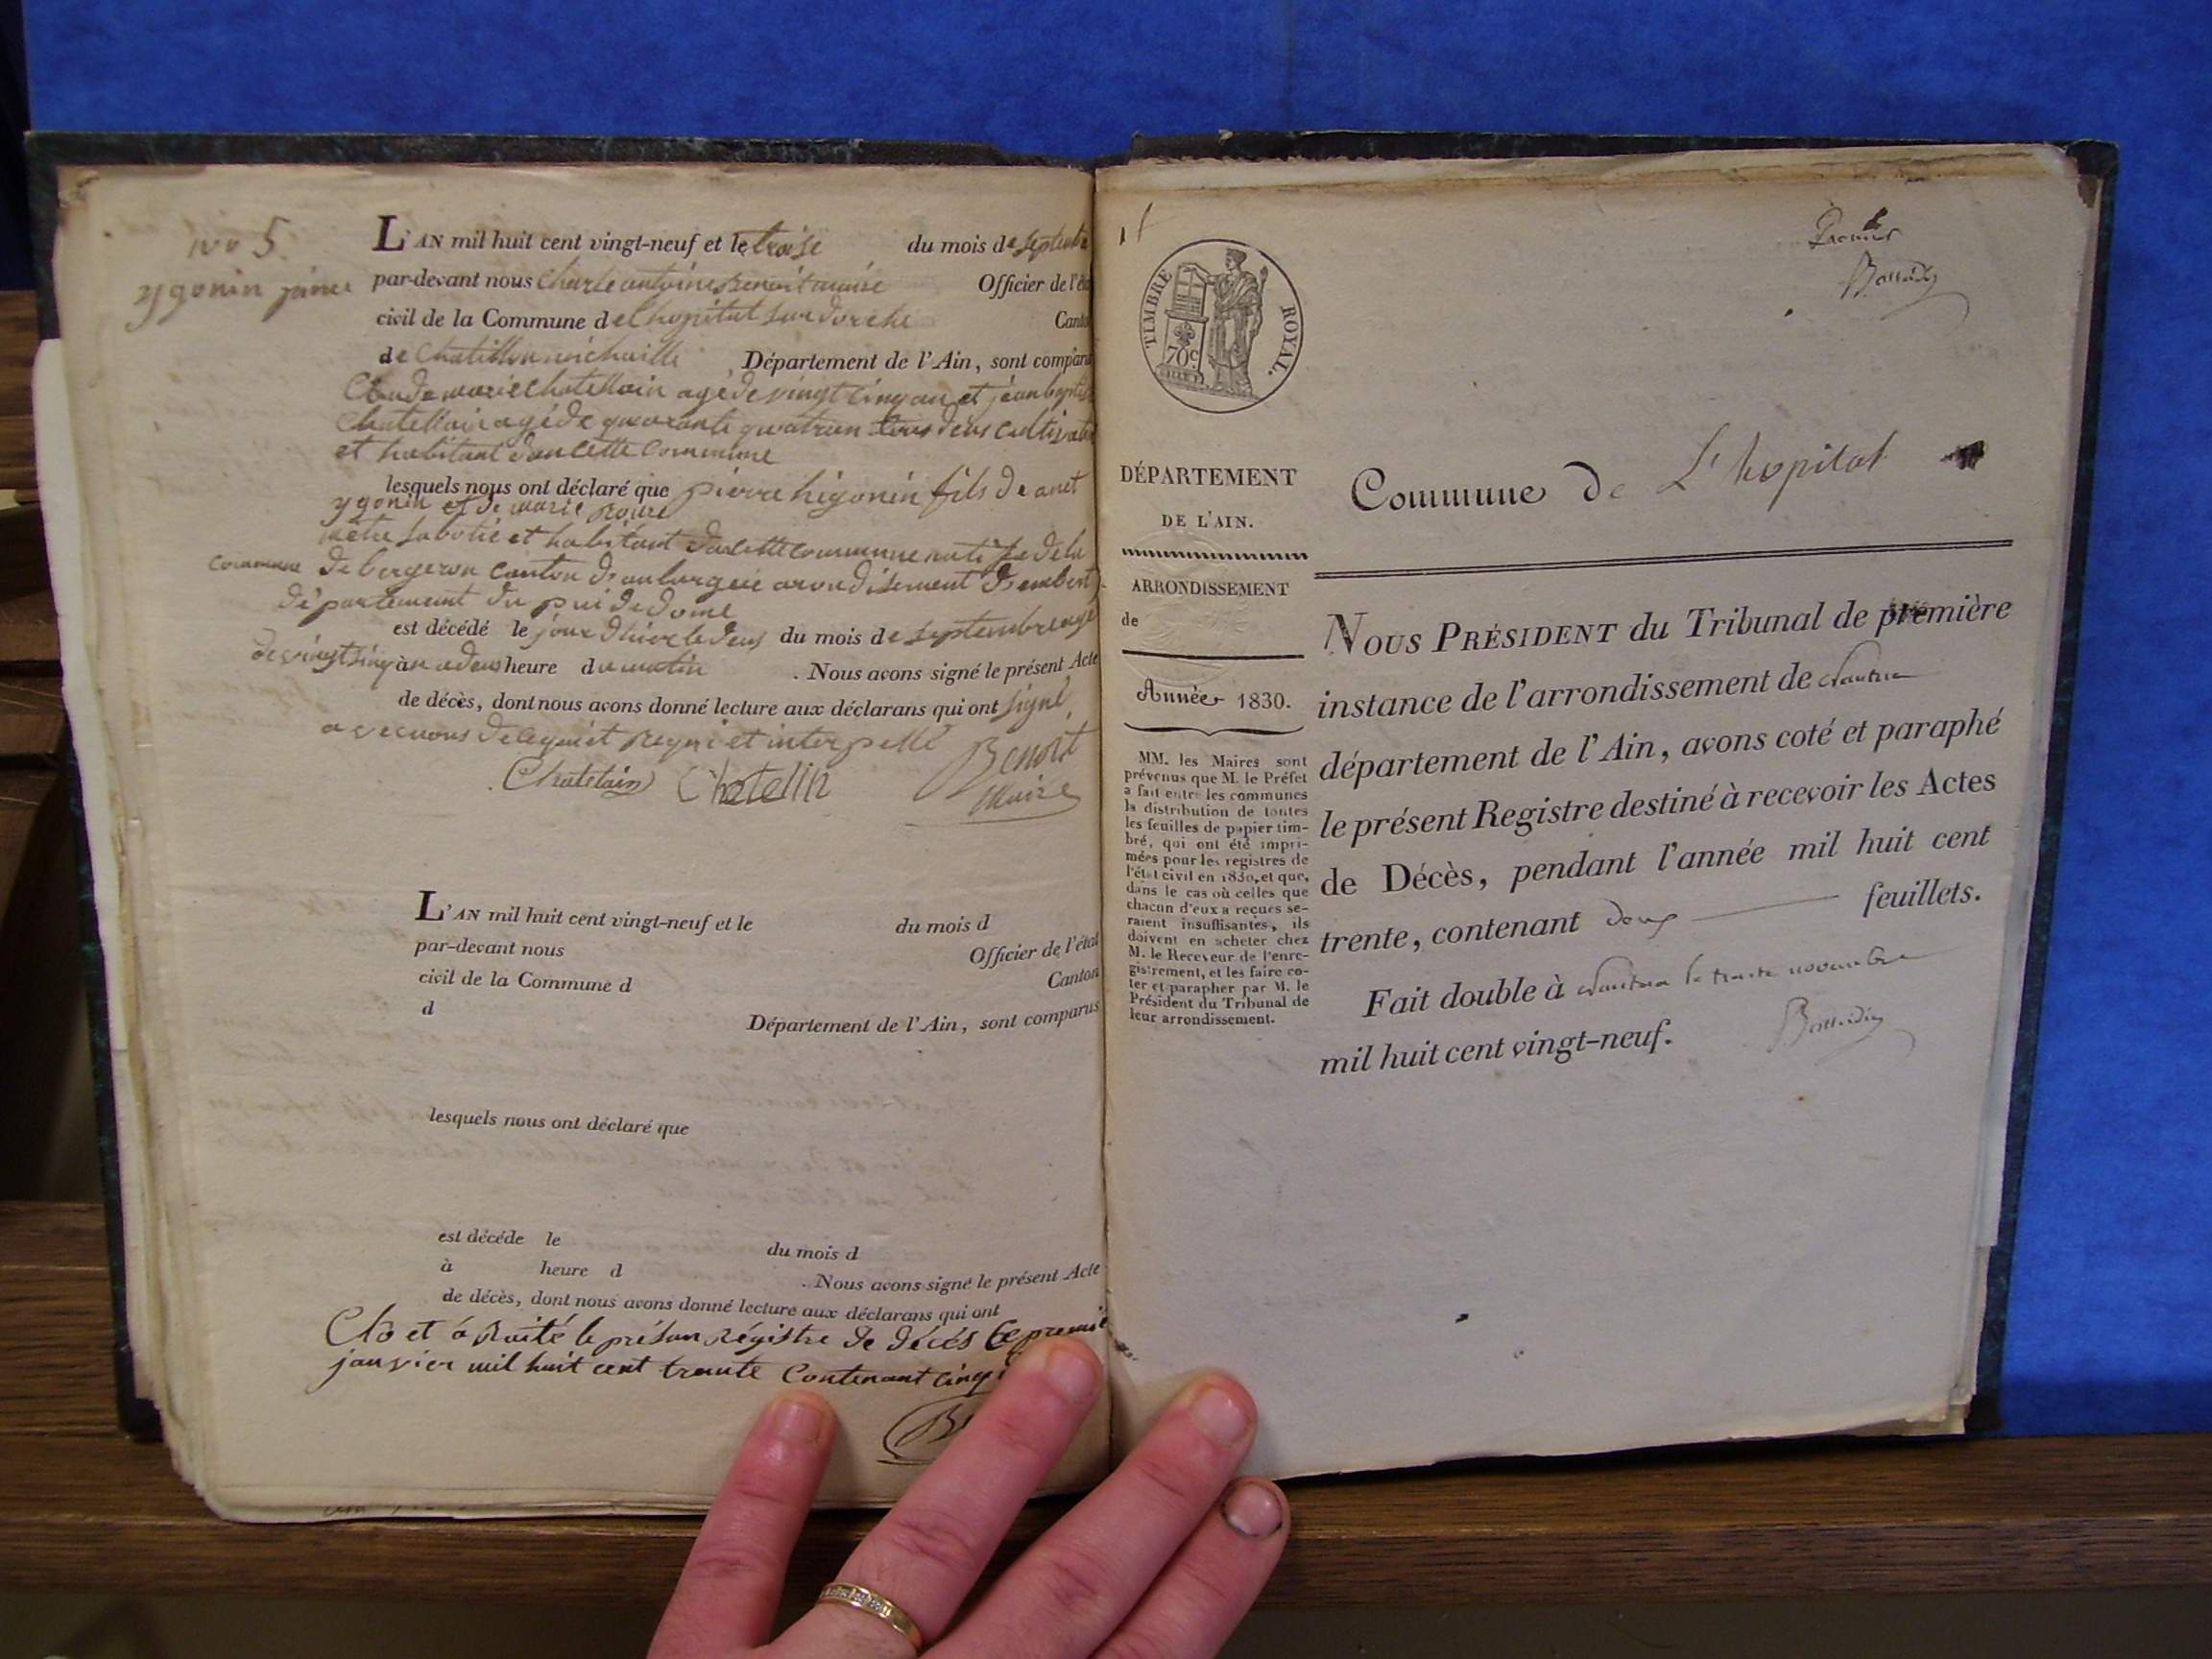 No 5
ygonin
L'AN mil huit cent vingt-neuf et le troise du mois de septembre
par-devant nous Charle antoine benoit maire Officier de l'éta
civil de la Commune de lhopital surdorche Canto
de Chatillon michaille, Département de l'Ain, sont comparu
Claude marie Chatellain agé de vingt cinq an et jéan baptiste
Chatellain agé de quarante quatre an tous deus cultivate
et habitant dan cette commune
lesquels nous ont déclaré que pierre higonin fils de anet
ygonin et de marie
sabotié et habitant dan cette commune natife de la
commune de bergeron canton d'anlargeie arondisement d'embert
département du pui de dome
est décédé le jour d'hiere le deus du mois de septembre agé
de vingt sinq àn a deus heure du matin. Nous avons signé le présent Acte
de décès, dont nous avons donné lecture aux déclarans qui ont signé
avec nous de ce quiet et interpellé
Chatelain Chatelin Benoit
Maire
L'AN mil huit cent vingt-neuf et le du mois d
par-devant nous Officier de l'état
civil de la Commune d Canton
d Département de l'Ain, sont comparus
lesquels nous ont déclaré que
est décédé le du mois d
à heure d . Nous avons signé le présent Acte
de décès, dont nous avons donné lecture aux déclarans qui ont
Clo et le présan régistre de décés Ce premié
janvier mil huit cent trante Contenant cinq
TIMBRE ROYAL.
70c
DÉPARTEMENT
DE L'AIN.
ARRONDISSEMENT
de
Année 1830.
MM. les Maires sont
prévenus que M. le Préfet
a fait entre les communes
la distribution de toutes
les feuilles de papier tim-
bré, qui ont été impri-
mées pour les registres de
l'état civil en 1830, et que,
dans le cas où celles que
chacun d'eux a reçues se-
raient insuffisantes, ils
doivent en acheter chez
M. le Receveur de l'enre-
gistrement, et les faire co-
ter et parapher par M. le
Président du Tribunal de
leur arrondissement.
Premier
Commune de L'hopital
NOUS PRÉSIDENT du Tribunal de première
instance de l'arrondissement de Nantua
département de l'Ain, avons coté et paraphé
le présent Registre destiné à recevoir les Actes
de Décès, pendant l'année mil huit cent
trente, contenant deux feuillets.
Fait double à Nantua le trente novembre
mil huit cent vingt-neuf.